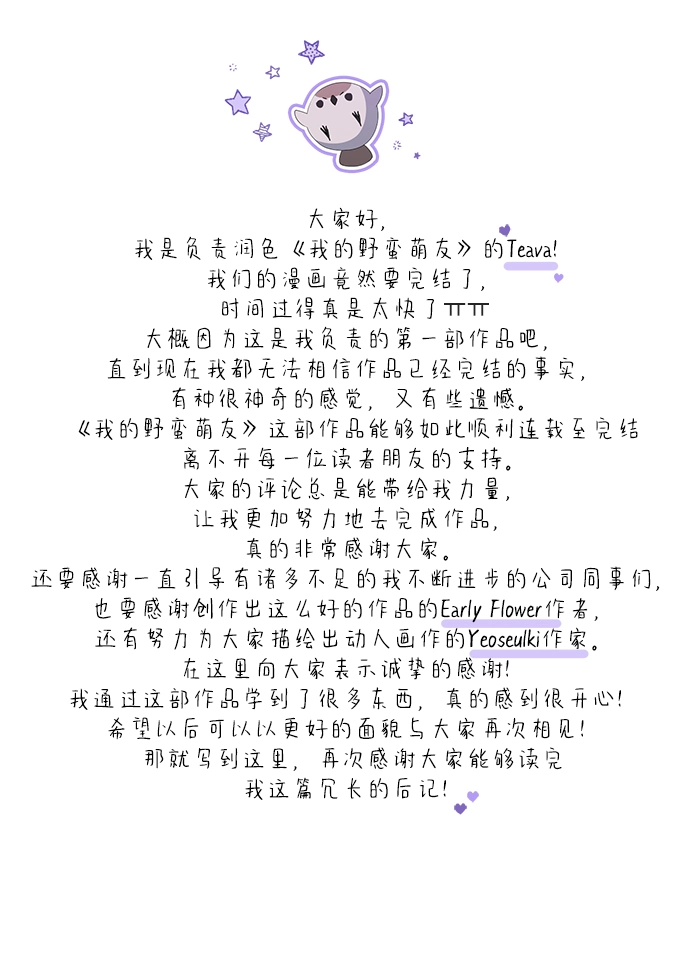 大家好,
我是负责润色《我的野蛮萌友》的Teava!
我们的漫画竟然要完结了,
时间过得真是太快了ㅠㅠ
大概因为这是我负责的第一部作品吧,
直到现在我都无法相信作品已经完结的事实,
有种很神奇的感觉, 又有些遗憾。
《我的野蛮萌友》这部作品能够如此顺利连载至完结
离不开每一位读者朋友的支持。
大家的评论总是能带给我力量,
让我更加努力地去完成作品,
真的非常感谢大家。
还要感谢一直引导有诸多不足的我不断进步的公司同事们,
也要感谢创作出这么好的作品的Early Flower作者,
还有努力为大家描绘出动人画作的Yeoseulki作家。
在这里向大家表示诚挚的感谢!
我通过这部作品学到了很多东西, 真的感到很开心!
希望以后可以以更好的面貌与大家再次相见!
那就写到这里, 再次感谢大家能够读完
我这篇冗长的后记!